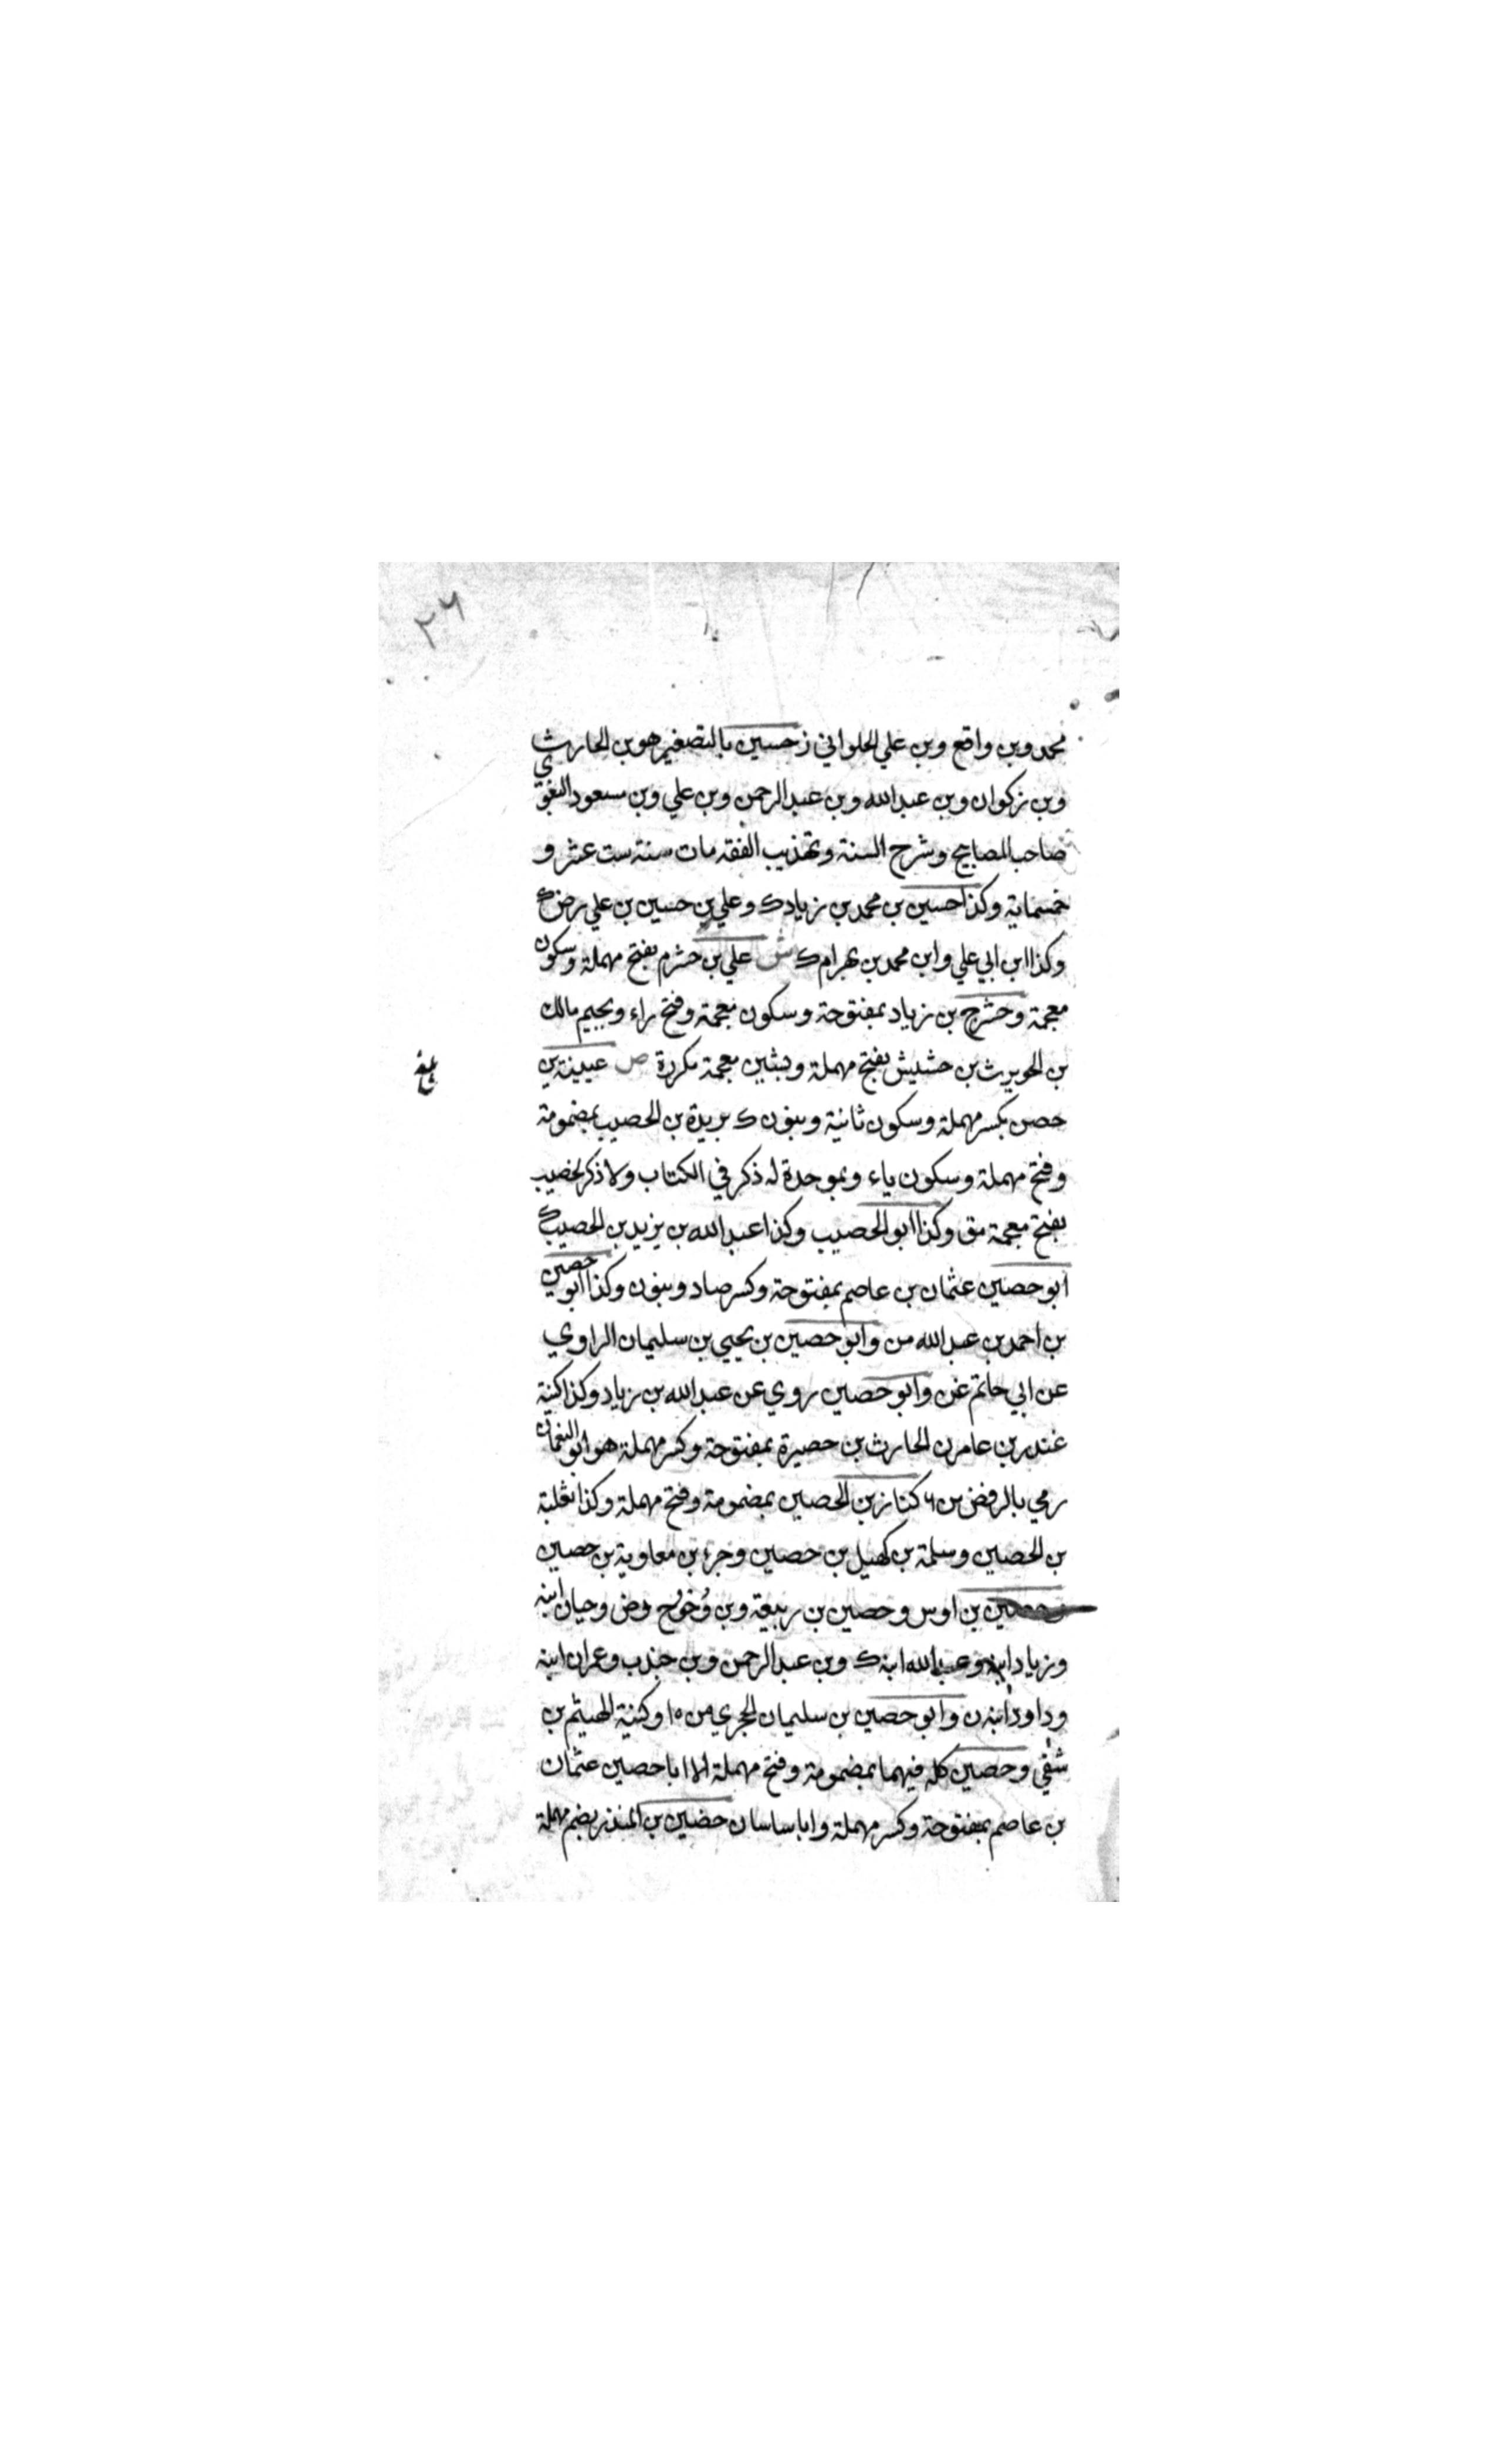 ٢٦
محمد وبن واقع وبن علي الحلواني ز حسين بالتصغير هو بن الحارث
وبن زكوان وبن عبد الله وبن عبد الرحمن وبن علي وبن مسعود البغوي
صاحب المصابيح وشرح السنة وتهذيب الفقه مات سنة ست عشر و
خمسماية وكذا حسين بن محمد بن زياد ك وعلي بن حسين بن علي رض ك
وكذا ابن ابي علي وابن محمد بن بهرام ك ش علي بن حشرم بفتح مهملة وسكون
معجمة وحشرج بن زياد بمفتوحة وسكون معجمة وفتح راء وبجيم مالك
بن الحويرث بن حشيش بفتح مهملة وبشين معجمة مكررة ص عيينة بن
حصن بكسر مهملة وسكون ثانية وبنون ك بريدة بن الحصيب بمضمومة
وفتح مهملة وسكون ياء وبموحدة له ذكر في الكتاب ولا ذكر لخصيب
بفتح معجمة مق وكذا ابو الحصيب وكذا عبد الله بن يزيد بن الحصيب ك
ابو حصين عثمان بن عاصم بمفتوحة وكسر صاد وبنون وكذا ابو حصين
بن احمد بن عبد الله من وابو حصين بن يحيي بن سليمان الراوي
عن ابي حاتم غن وابو حصين روي عن عبد الله بن زياد وكذا كنية
غندر بن عامر ن الحارث بن حصيرة بمفتوحة وكسر مهملة هو ابو النعمان
رمي بالرفض من ٦ كناز بن الحصين بمضمومة وفتح مهملة وكذا ثعلبة
بن الحصين وسلمة بن كهيل بن حصين وجزء بن معاوية بن حصين
وحصين بن اوس وحصين بن ربيعة وبن وُحْوح وض وحيان ابنه
وزياد ابنه وعبد الله ابنه ك وبن عبد الرحمن وبن جندب وعمران ابنه
وداود ابنه ن وابو حصين بن سليمان الحجري من ١٥ وكنية الهيثم بن
شفي وحصين كله فيهما بمضمومة وفتح مهملة الا ابا حصين عثمان
بن عاصم بمفتوحة وكسر مهملة وابا ساسان حضين بن المنذر بضم مهملة